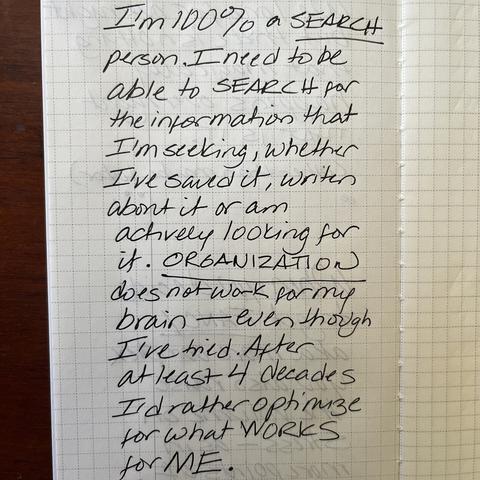 I'm 100% a SEARCH
person. I need to be
able to SEARCH for
the information that
I'm seeking, whether
I've saved it, written
about it or am
actively looking for
it. ORGANIZATION
does not work for my
brain — even though
I've tried. After
at least 4 decades
I'd rather optimize
for what WORKS
for ME.